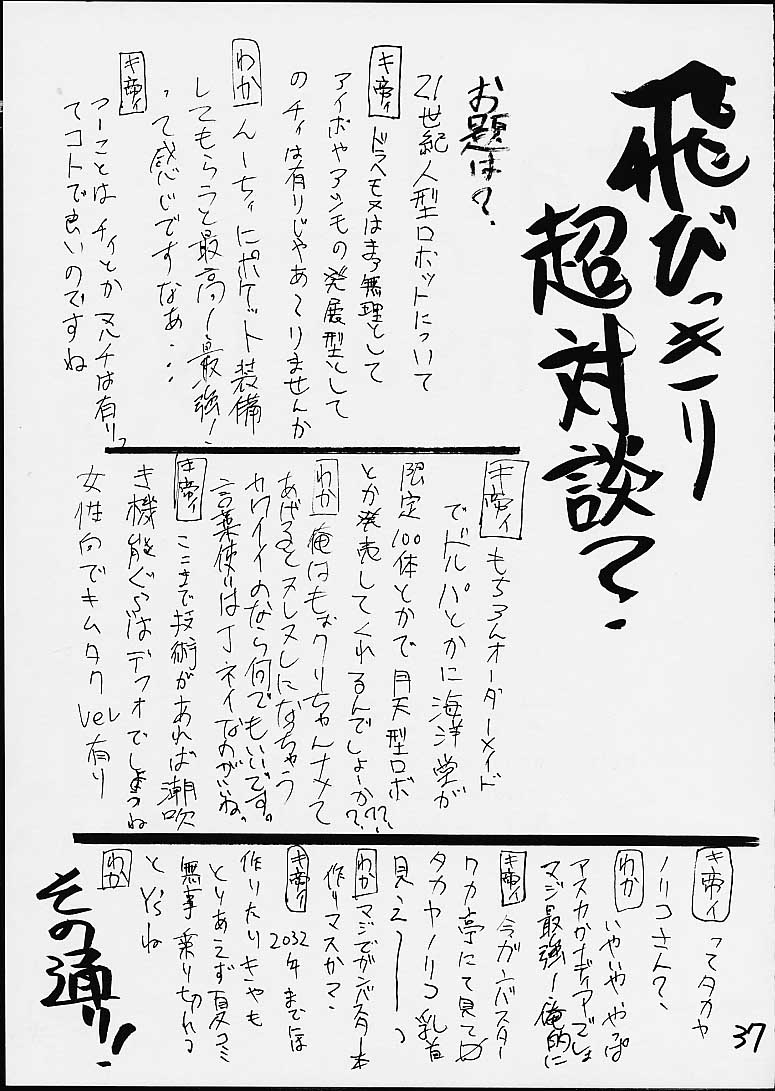 飛びっきり
超対談?
お題は?
21世紀人型ロボットについて
キ帝ィ ドラヘモヌはまず無理として
アイボやアシモの発展型として
のチィは有りじゃあーりませんか
わか んーちぃにポケット装備
してもらうと最高ー!最強!
って感じですなぁ・・・
キ帝ィ
つーことはチィとかマルチは有りっ
てコトで良いのですね
キ帝ィ もちろんオーダーメイド
でドルパとかに海洋堂が
限定100体とかで月天型ロボ
とか発売してくれるんでしょーか??
わか 俺はもぉクリちゃんナメて
あげるとヌレヌレになっちゃう
カワイイのなら何でもいいです。
言葉使いはTネイなのがいいね。
キ帝ィ ここまで技術があれば潮吹
き機能ぐらいはデフォでしょうね
女性向でキムタクver有り
キ帝ィ ってタカヤ
ノリコさん?
わか いやいややっぱ
アスカかナディアでしょ
マジ最強!俺的に
キ帝ィ 今ガンバスター
ワカ亭にて見て
タカヤノリコ乳首
見えーーっ
わか マジでガンバスター本
作りマスか?
キ帝ィ 2032年までは
作りたりきやも
とりあえず夏コミ
無事乗り切れっ
とY'sね
わか
その通り!
37